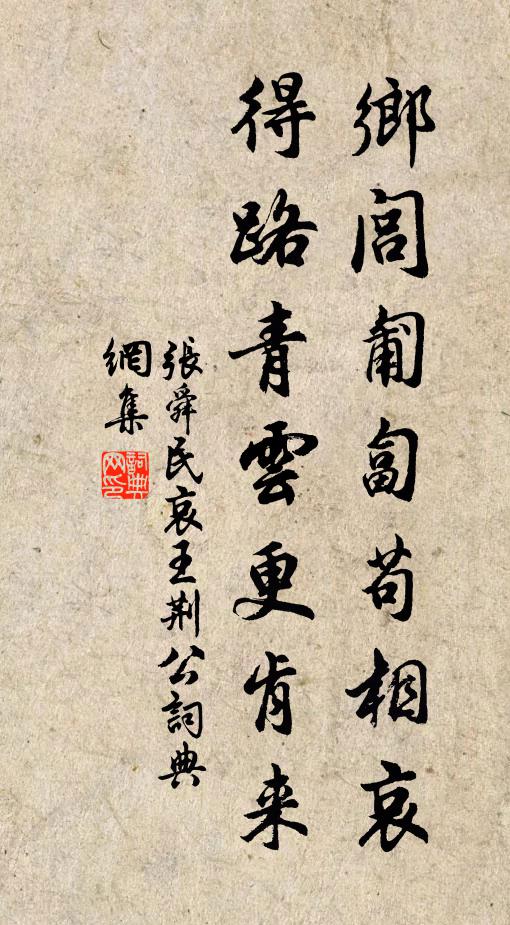 鄉閭匍匐苟相哀
得路青雲更肯来
張舜民哀王荆公詞典
網集
詞典
网印